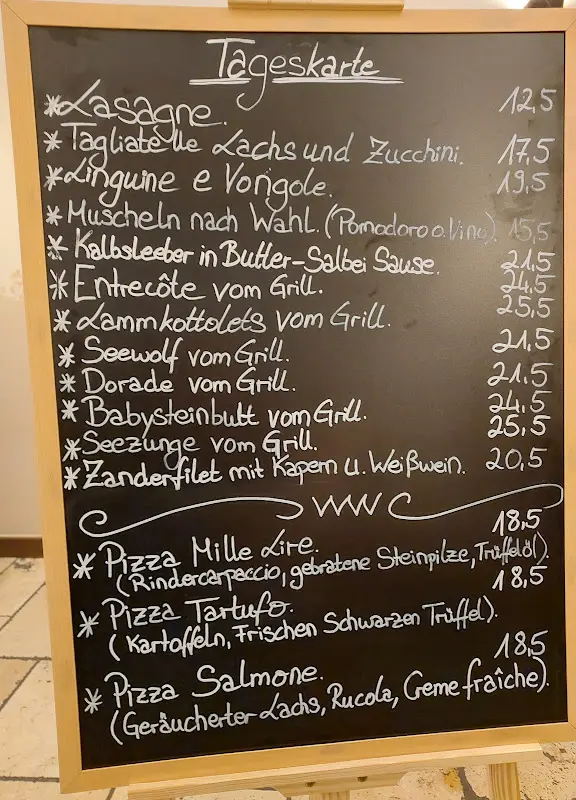 Tageskarte
* Lasagne. 12,5
* Tagliatelle Lachs und Zucchini. 17,5
* Linguine e Vongole. 19,5
* Muscheln nach Wahl. (Pomodoro o. Vino) 15,5
* Kalbsleeber in Butter-Salbei Sause. 21,5
* Entrecôte vom Grill. 24,5
* Lammkottolets vom Grill. 25,5
* Seewolf vom Grill. 21,5
* Dorade vom Grill. 21,5
* Babysteinbutt vom Grill. 24,5
* Seezunge vom Grill. 25,5
* Zanderfilet mit Kapern u. Weißwein. 20,5
* Pizza Mille Lire. 18,5
(Rindercarpaccio, gebratene Steinpilze, Trüffelöl).
* Pizza Tartufo. 18,5
(Kartoffeln, Frischen Schwarzen Trüffel).
* Pizza Salmone. 18,5
(Geräucherter Lachs, Rucola, Creme fraîche).